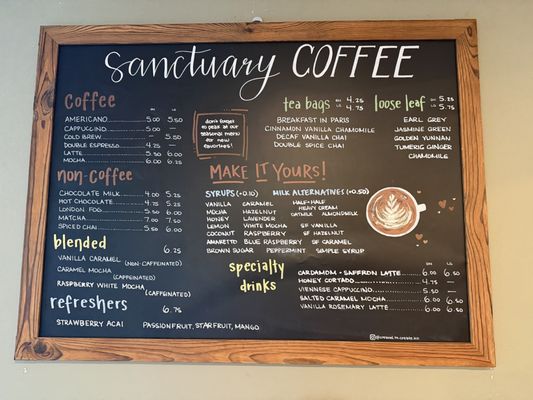 Sanctuary COFFEE
Coffee SM LG
AMERICANO 5.00 5.50
CAPPUCCINO 5.00 —
COLD BREW — 5.50
DOUBLE ESPRESSO 4.25 —
LATTE 5.50 6.00
MOCHA 6.00 6.25
non-Coffee
CHOCOLATE MILK 4.00 5.25
HOT CHOCOLATE 4.75 5.25
LONDON FOG 5.50 6.00
MATCHA 7.00 7.50
SPICED CHAI 5.50 6.00
blended 6.25
VANILLA CARAMEL (NON-CAFFEINATED)
CARAMEL MOCHA (CAFFEINATED)
RASPBERRY WHITE MOCHA (CAFFEINATED)
refreshers 6.75
STRAWBERRY ACAI PASSIONFRUIT, STARFRUIT, MANGO
don't forget
to peek at our
seasonal menu
for new
favorites!
tea bags SM 4.25
LG 4.75
BREAKFAST IN PARIS
CINNAMON VANILLA CHAMOMILE
DECAF VANILLA CHAI
DOUBLE SPICE CHAI
loose leaf SM 5.25
LG 5.75
EARL GREY
JASMINE GREEN
GOLDEN YUNNAN
TUMERIC GINGER
CHAMOMILE
MAKE IT YOURS!
SYRUPS (+0.10)
VANILLA CARAMEL
MOCHA HAZELNUT
HONEY LAVENDER
LEMON WHITE MOCHA SF VANILLA
COCONUT RASPBERRY SF HAZELNUT
AMARETTO BLUE RASPBERRY SF CARAMEL
BROWN SUGAR PEPPERMINT SIMPLE SYRUP
MILK ALTERNATIVES (+0.50)
HALF+HALF
HEAVY CREAM
OATMILK ALMONDMILK
specialty
drinks
CARDAMOM-SAFFRON LATTE 6.00 6.50
HONEY CORTADO 4.75 —
VIENNESE CAPPUCCINO 5.50 —
SALTED CARAMEL MOCHA 6.00 6.50
VANILLA ROSEMARY LATTE 6.00 6.50